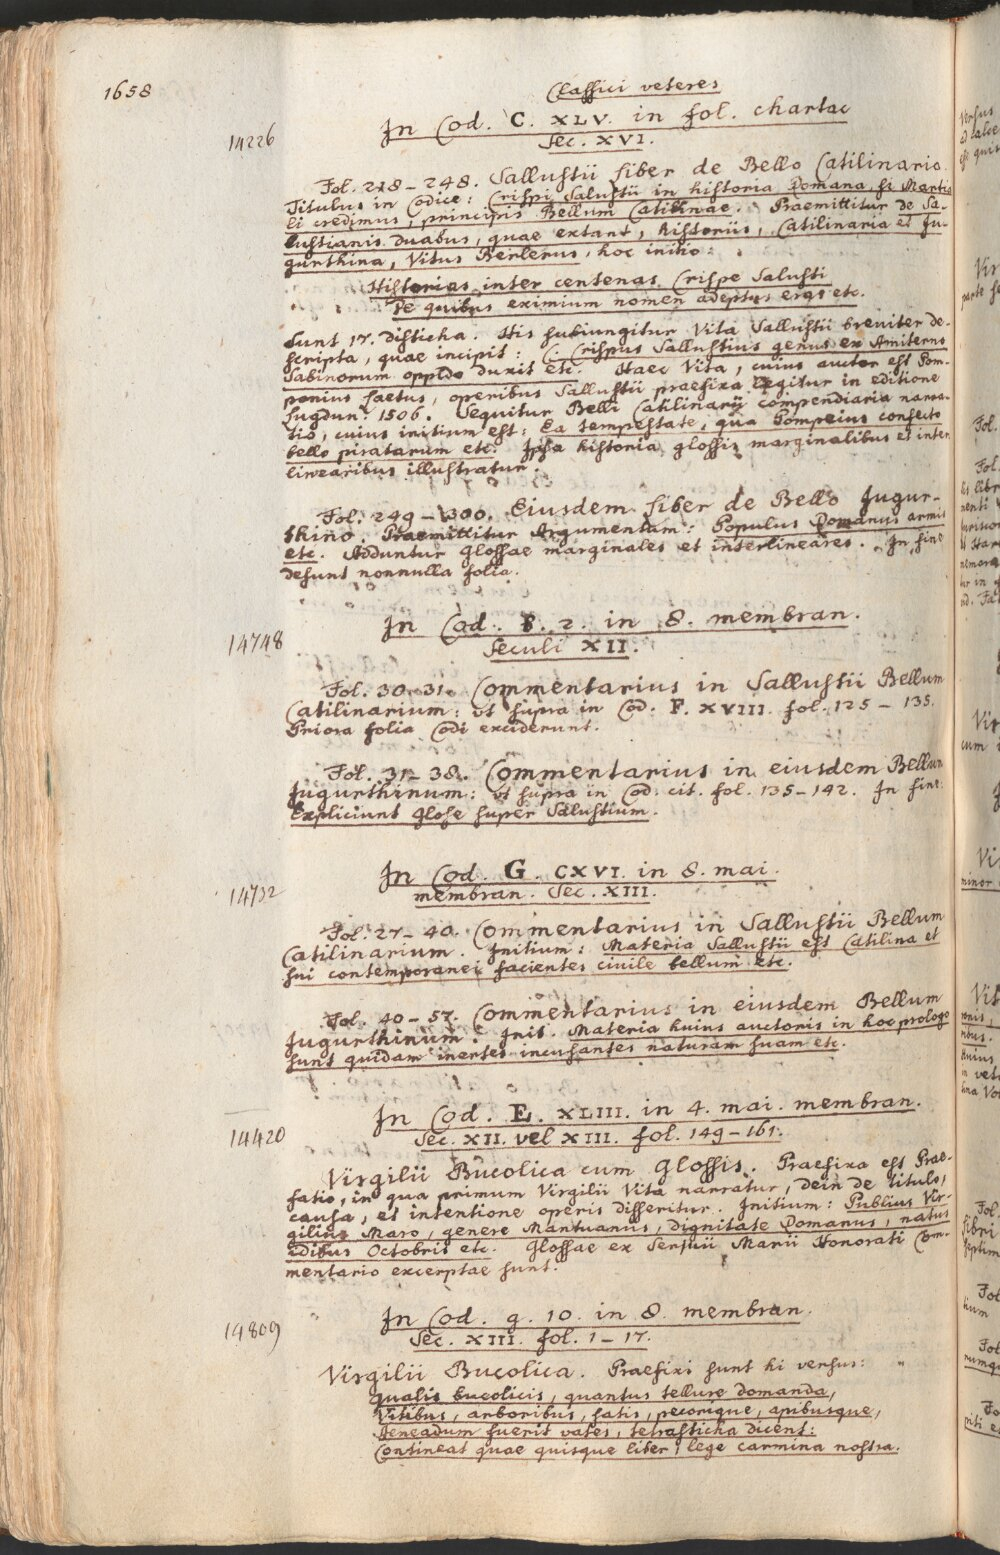 1658
Classici veteres
14226
In Cod. C. XLV. in fol. chartac
Sec. XVI.
Fol. 218-248. Sallustii liber de Bello Catilinario.
Titulus in Codice: Crispi Salustii in historia Romana, si Martia
li credimus, principis Bellum Catilinae. Praemittitur de Sa-
lustianis duabus, quae extant, historiis, Catilinaria et Ju-
gurthina, Vitus Berlerus, hoc initio:
Historias inter centenas Crispe Salusti
De quibus eximium nomen adeptus eras etc.
Sunt 17. disticha. His subiungitur Vita Sallustii breviter de-
scripta, quae incipit: C. Crispus Sallustius genus ex Amiterno
Sabinorum oppido duxit etc. Haec Vita, cuius auctor est Pom-
ponius Laetus, operibus Sallustii praefixa legitur in editione
Lugdun: 1506. Sequitur Belli Catilinarij compendiaria narra-
tio, cuius initium est: Ea tempestate, qua Pompeius confecto
bello piratarum etc. Ipsa historia glossis marginalibus et inter
linearibus illustratur.
Fol. 249-300. Eiusdem liber de Bello Jugur-
thino. Praemittitur Argumentum: Populus Romanus armis
etc. Adduntur glossae marginales et interlineares. In fine
desunt nonnulla folia.
14748
In Cod. B. 2. in 8. membran.
Seculi XII.
Fol. 30-31. Commentarius in Sallustii Bellum
Catilinarium: ut supra in Cod. F. XVIII. fol. 125-135.
Priora folia Codi exciderunt.
Fol. 31-38. Commentarius in eiusdem Bellum
Jugurthinum: ut supra in Cod. cit. fol. 135-142. In fine:
Expliciunt glose super Salustium.
14732
In Cod. G. CXVI. in 8. mai.
membran. Sec. XIII.
Fol. 27-40. Commentarius in Sallustii Bellum
Catilinarium. Initium: Materia Sallustii est Catilina et
sui contemporanei facientes civile bellum etc.
Fol. 40-57. Commentarius in eiusdem Bellum
Jugurthinum: Init. Materia huius auctoris in hoc prologo
sunt quidam inertes incusantes naturam suam etc.
14420
In Cod. E. XLIII. in 4. mai. membran.
Sec. XII. vel XIII. fol. 149-161.
Virgilii Bucolica cum Glossis. Praefixa est Prae-
fatio, in qua primum Virgilii Vita narratur, dein de titulo,
causa, et intentione operis disseritur. Initium: Publius Vir-
gilius Maro, genere Mantuanus, dignitate Romanus, natus
idibus Octobris etc. Glossae ex Servii Marii Honorati Com-
mentario excerptae sunt.
14809
In Cod. g. 10. in 8. membran.
Sec. XIII. fol. 1-17.
Virgilii Bucolica. Praefixi sunt hi versus:
Qualis bucolicis, quantus tellure domanda,
Vitibus, arboribus, satis, pecorique, apibusque,
Aeneadum fuerit vates, tetrasticha dicent:
Contineat quae quisque liber, lege carmina nostra.